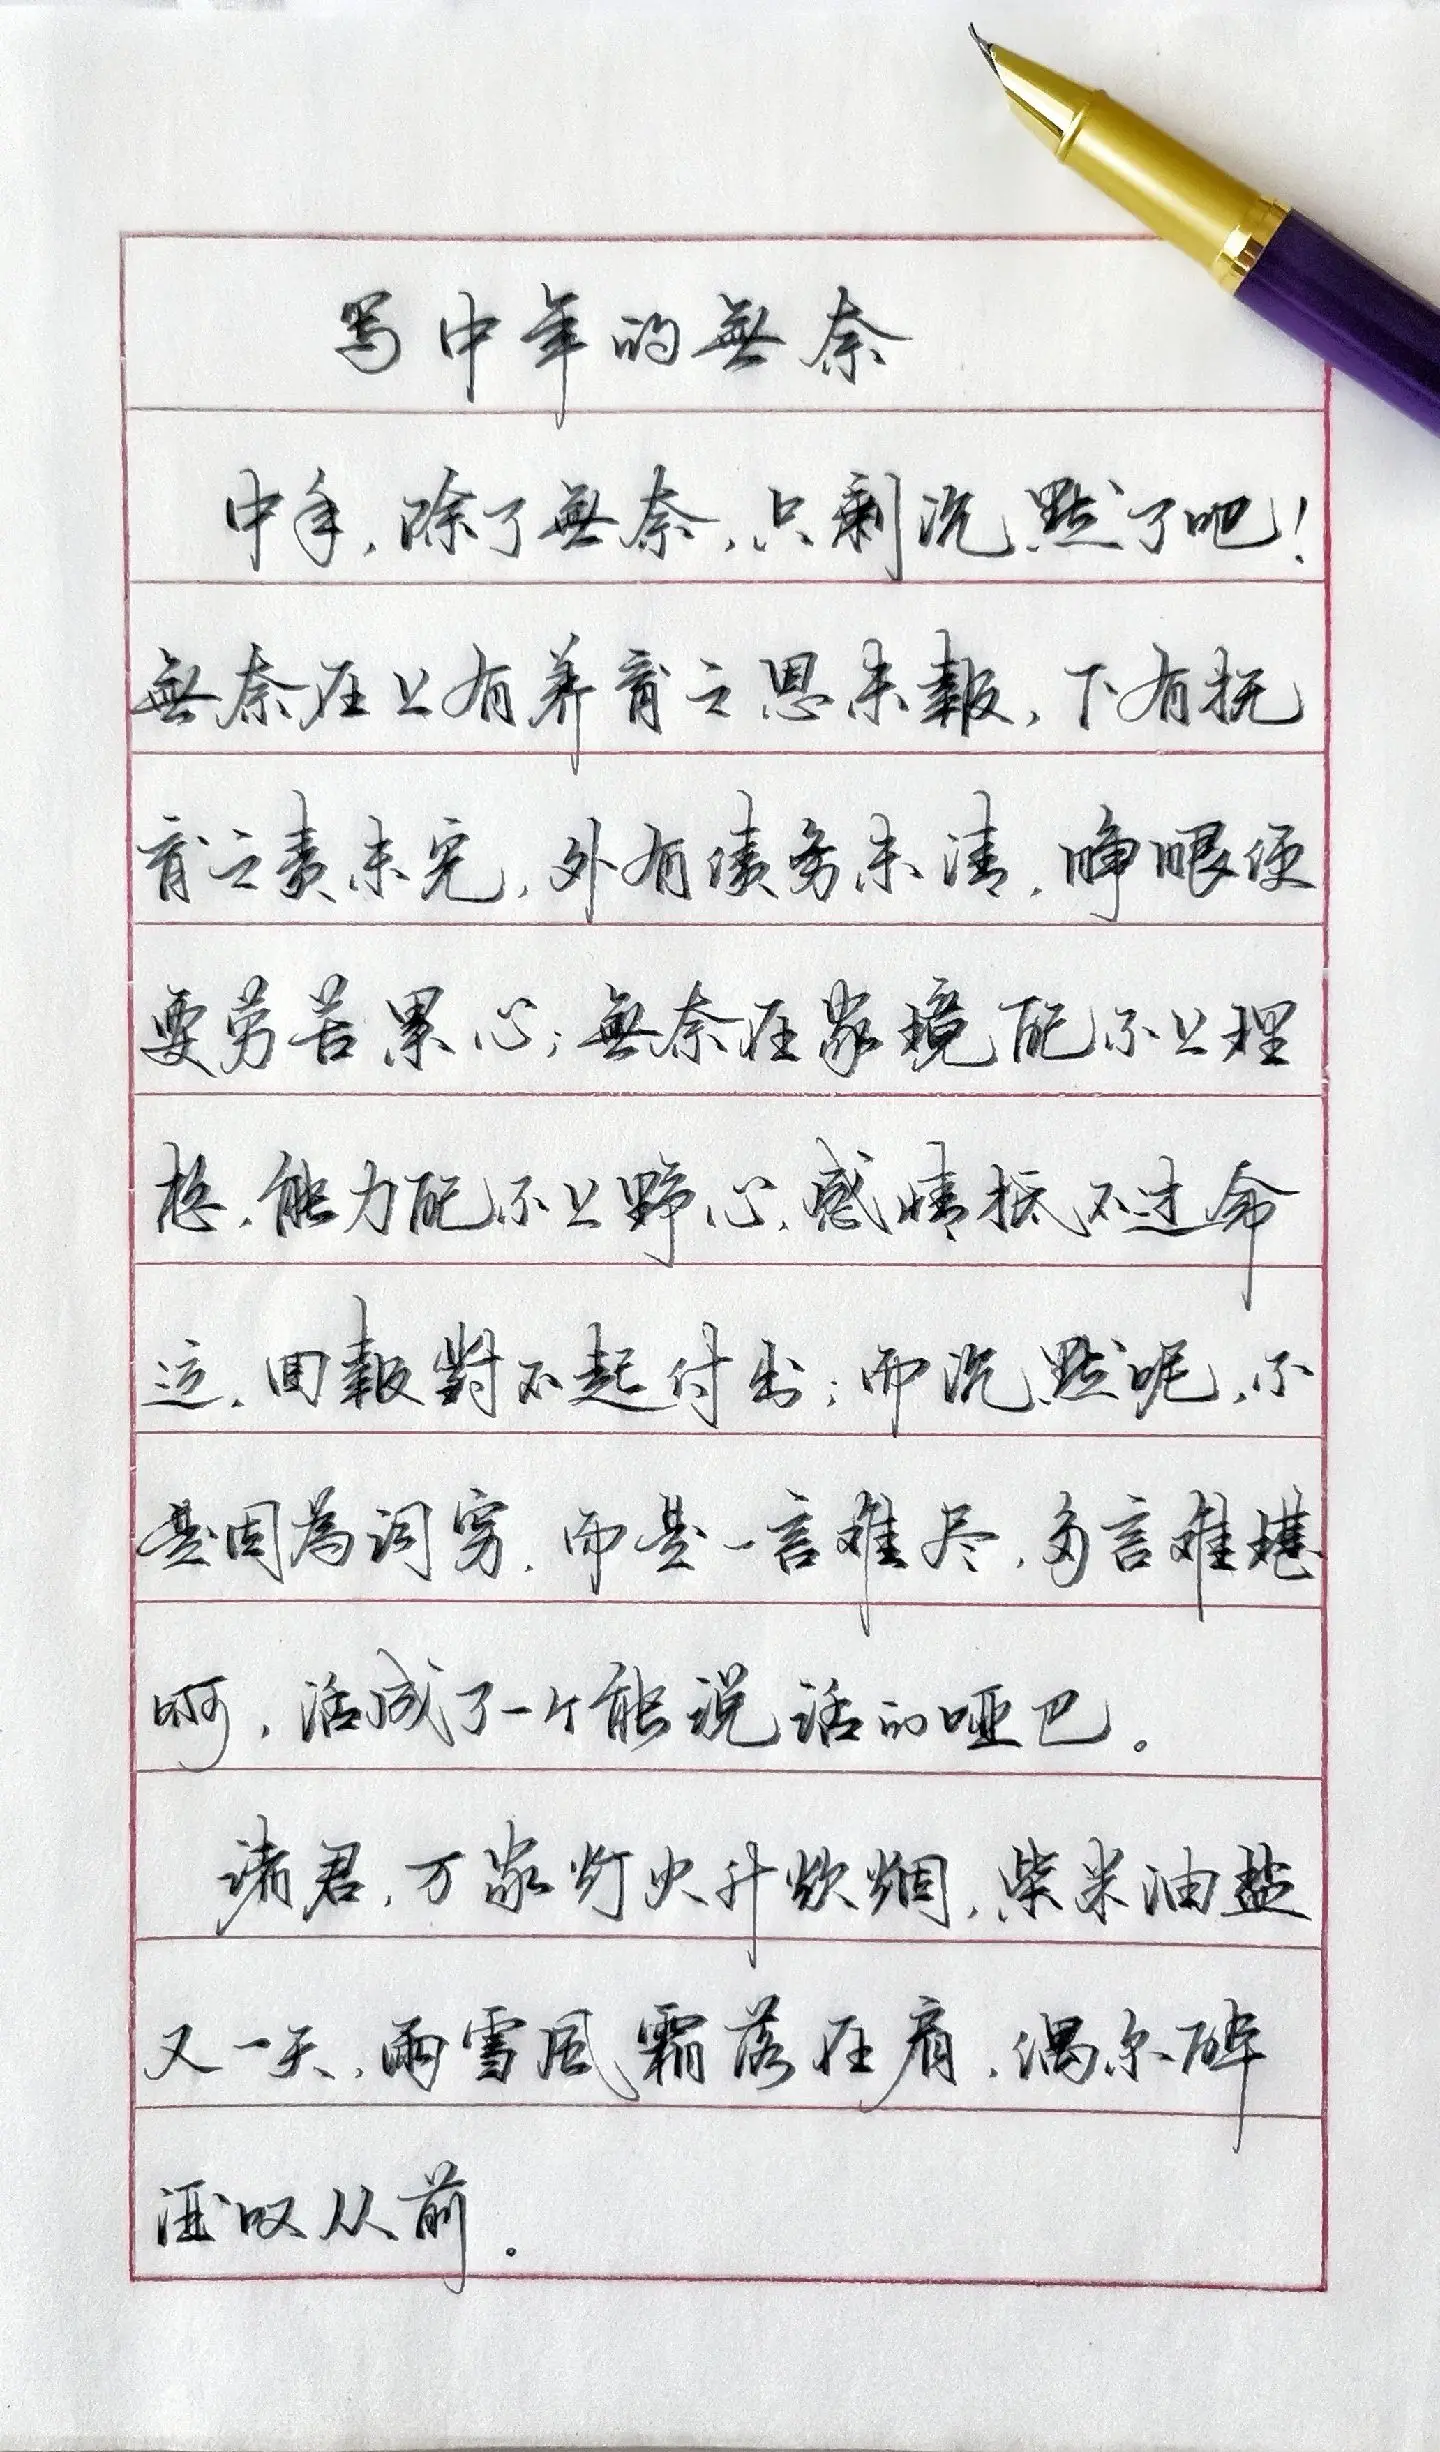 写中年的無奈
中年,除了無奈,只剩沉默了吧!
無奈在上有养育之恩未報,下有抚
育之责未完,外有债务未清,睁眼便
要劳苦累心;無奈在家境配不上理
想,能力配不上野心,感情抵不过命
运,回報對不起付出;而沉默呢,不
是因為词穷,而是一言难尽,多言难堪
啊,活成了一个能说话的哑巴。
诸君,万家灯火升炊烟,柴米油盐
又一天,雨雪風霜落在肩,偶尔碎
酒叹从前。